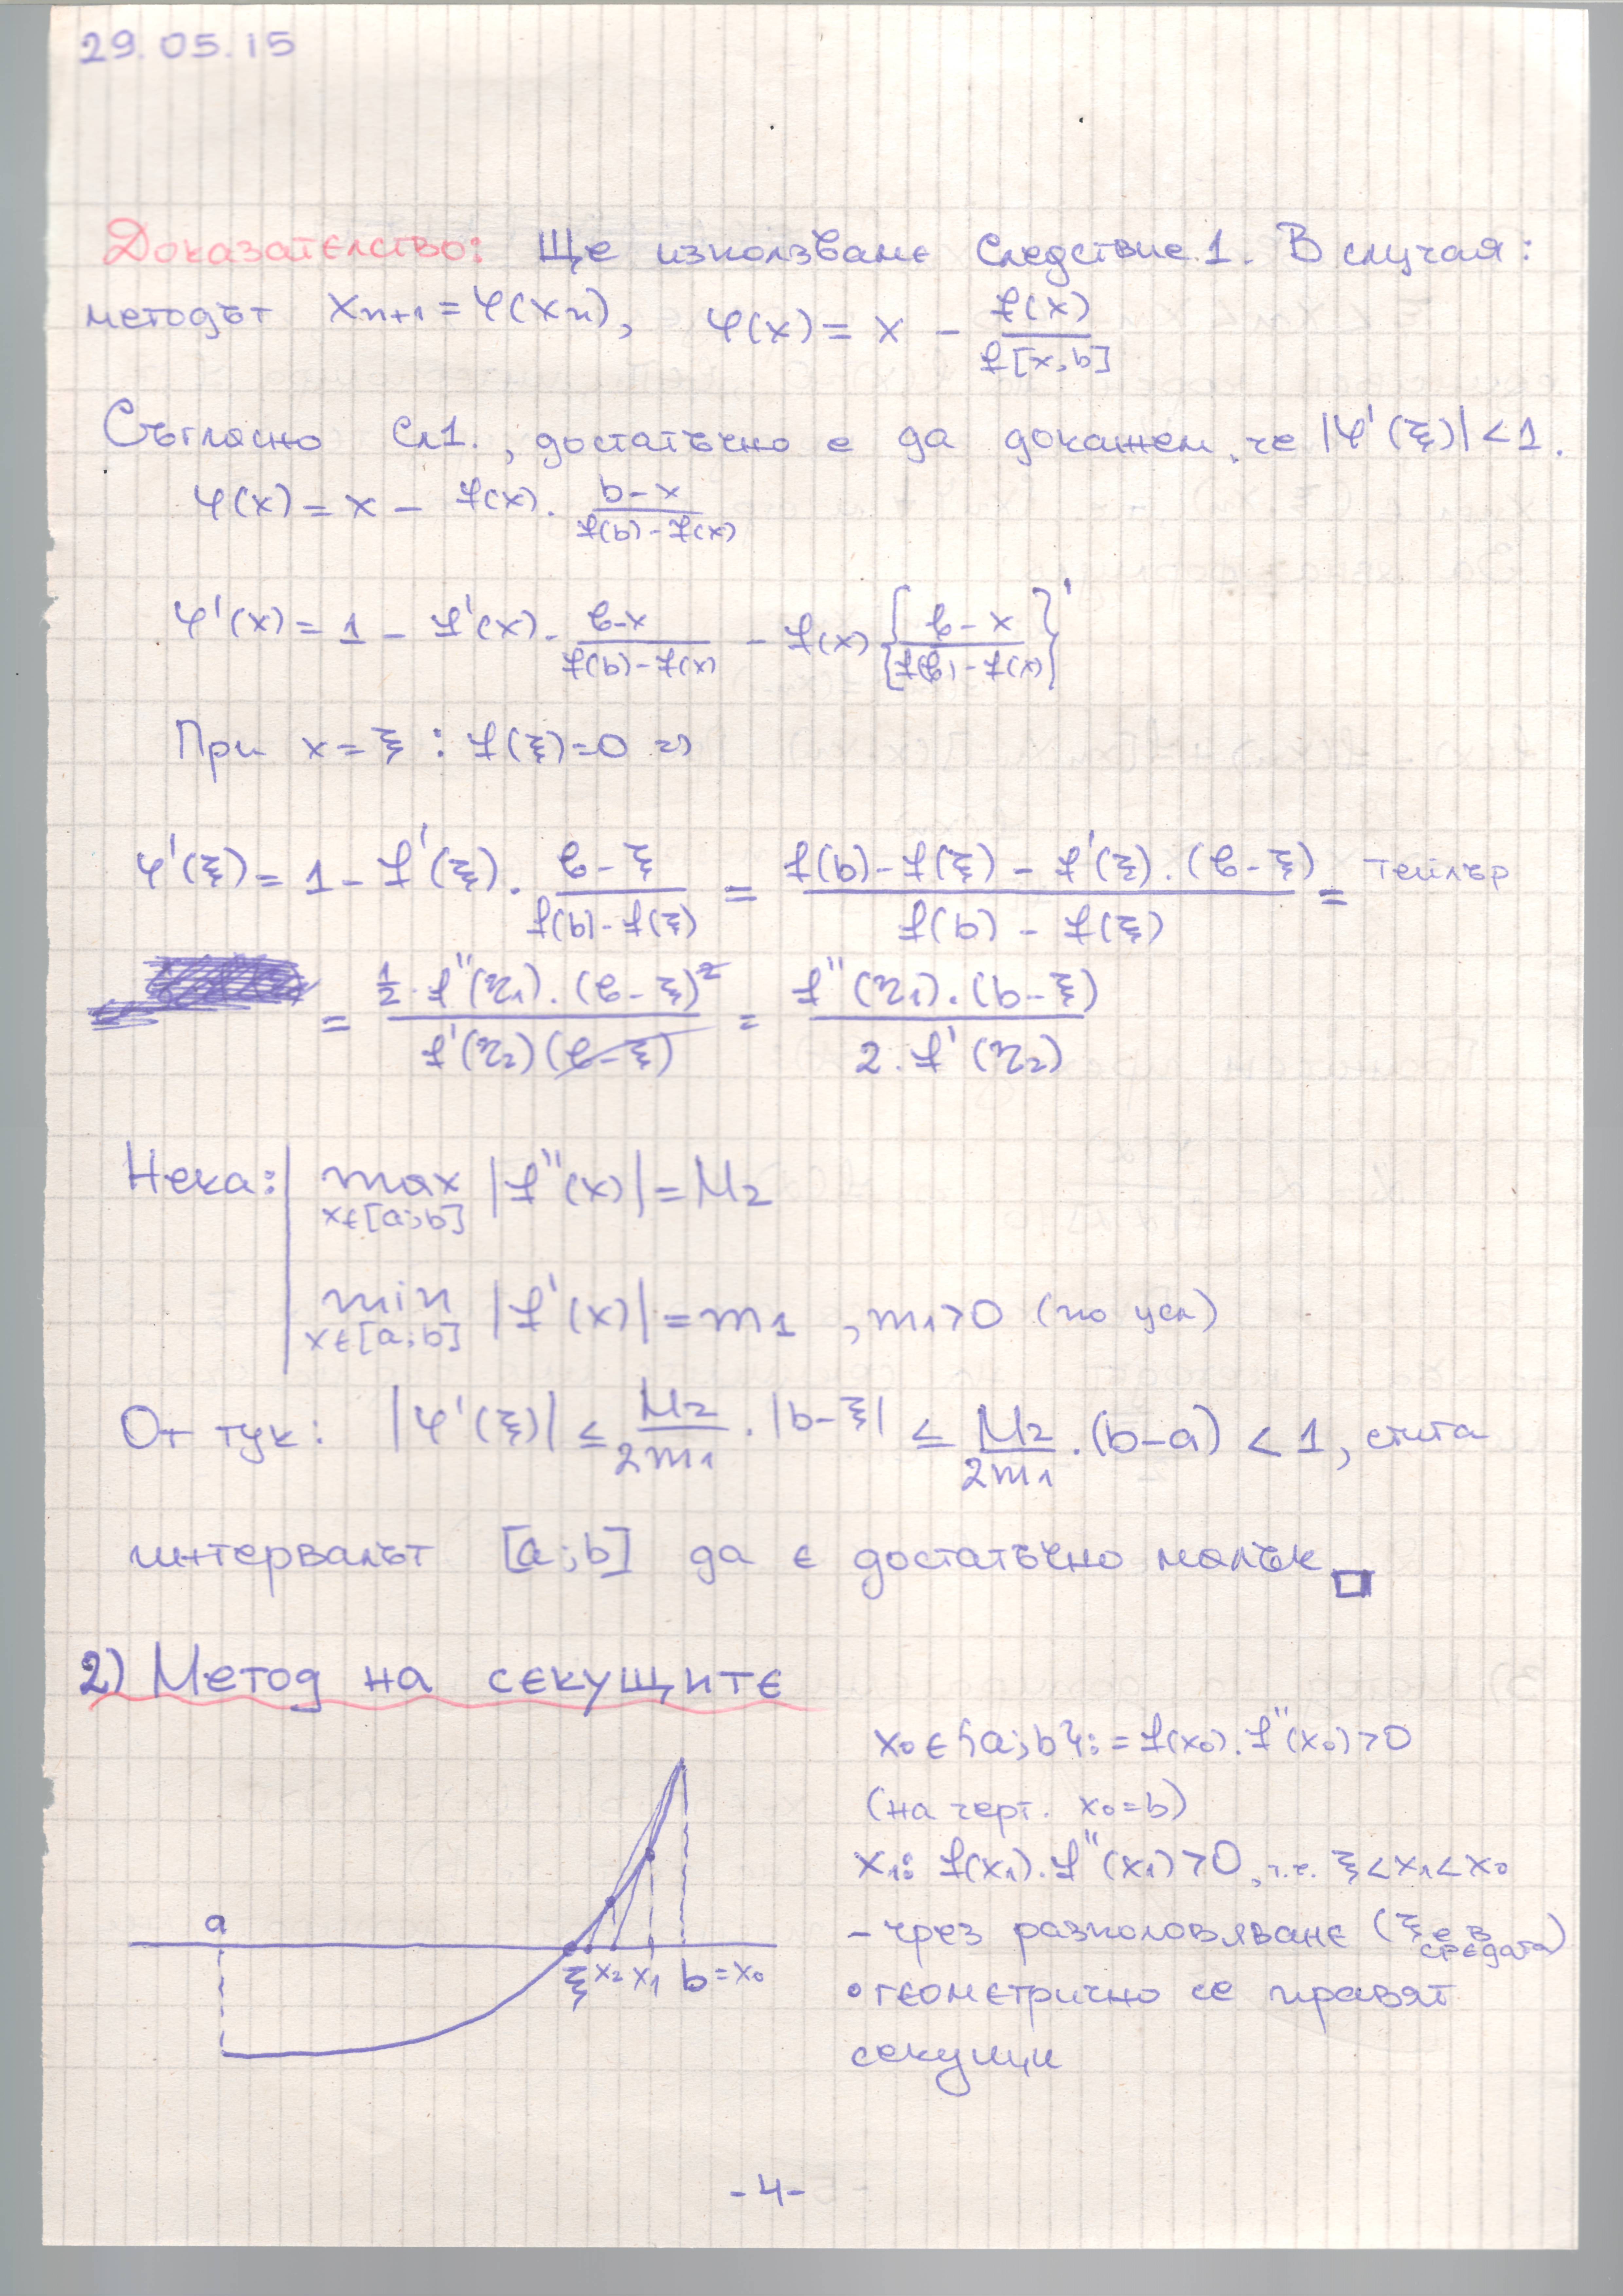 29.05.15
Доказателство: Ще използваме Следствие.1. В случая:
методът xₙ₊₁ = φ(xₙ), φ(x) = x - f(x) / f[x;b]
Съгласно Сл1., достатъчно е да докажем, че |φ'(ξ)| < 1.
φ(x) = x - f(x) . (b-x) / (f(b)-f(x))
φ'(x) = 1 - f'(x) . (b-x) / (f(b)-f(x)) - f(x) {(b-x) / (f(b)-f(x))}'
При x = ξ : f(ξ)=0 =>
φ'(ξ) = 1 - f'(ξ) . (b-ξ) / (f(b)-f(ξ)) = (f(b)-f(ξ) - f'(ξ).(b-ξ)) / (f(b) - f(ξ)) = Тейлър
= (½ . f''(η₁).(b-ξ)²) / (f'(η₂)(b-ξ)) = (f''(η₁).(b-ξ)) / (2.f'(η₂))
Нека: max |f''(x)| = M₂
x∈[a;b]
min |f'(x)| = m₁ , m₁>0 (по усл)
x∈[a;b]
От тук: |φ'(ξ)| ≤ M₂/2m₁ . |b-ξ| ≤ M₂/2m₁ . (b-a) < 1, стига
интервалът [a;b] да е достатъчно малък □
2) Метод на секущите
x₀ ∈ {a;b}: = f(x₀).f''(x₀)>0
(на черт. x₀=b)
x₁: f(x₁).f''(x₁)>0, т.ч. ξ<x₁<x₀
- чрез разполовяване (ξ е в средата)
• геометрично се правят
секущи
a
ξ x₂ x₁ b=x₀
-4-